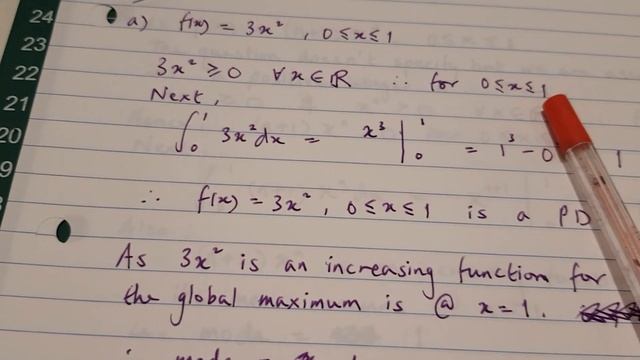 24
23
22
21
20
9
a) f(x) = 3x² , 0 ≤ x ≤ 1
3x² ≥ 0 ∀x∈ℝ ∴ for 0≤x≤1
Next,
∫₀¹ 3x²dx = x³|₀¹ = 1³ - 0 1
∴ f(x) = 3x² , 0 ≤ x ≤ 1 is a PD
As 3x² is an increasing function for
the global maximum is @ x=1.